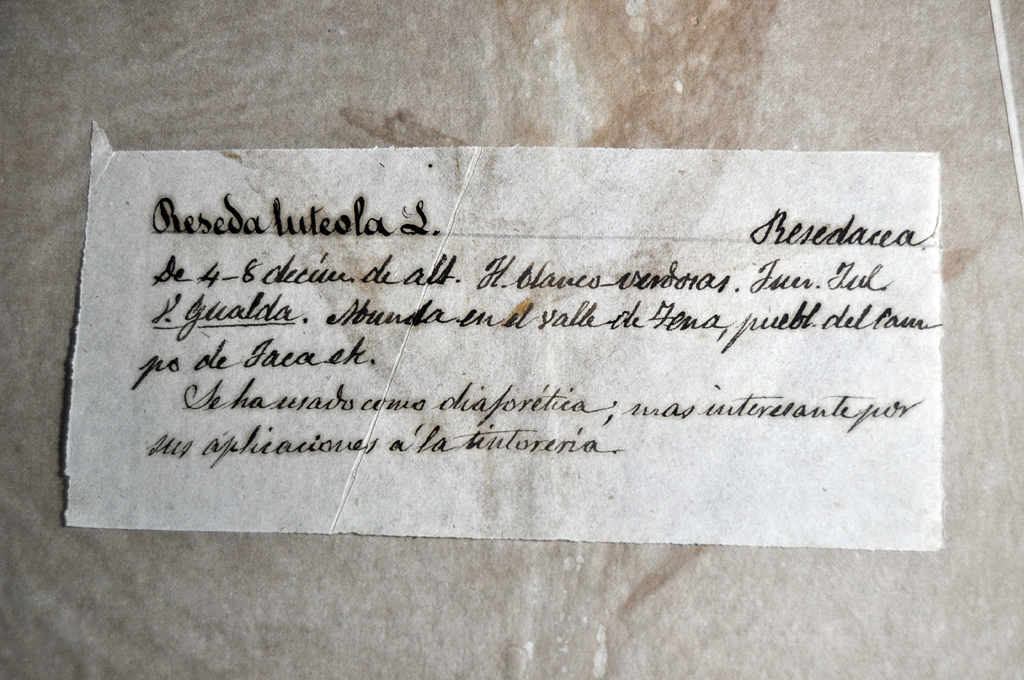 Reseda luteola L. Resedacea.
De 4-8 decím. de alt. H. blanco-verdosas. Jun. Jul
V. Gualda. Abunda en el valle de Tena, puebl. del Cam
po de Jaca etc.
Se ha usado como diaforética; mas interesante por
sus aplicaciones á la tintorería.